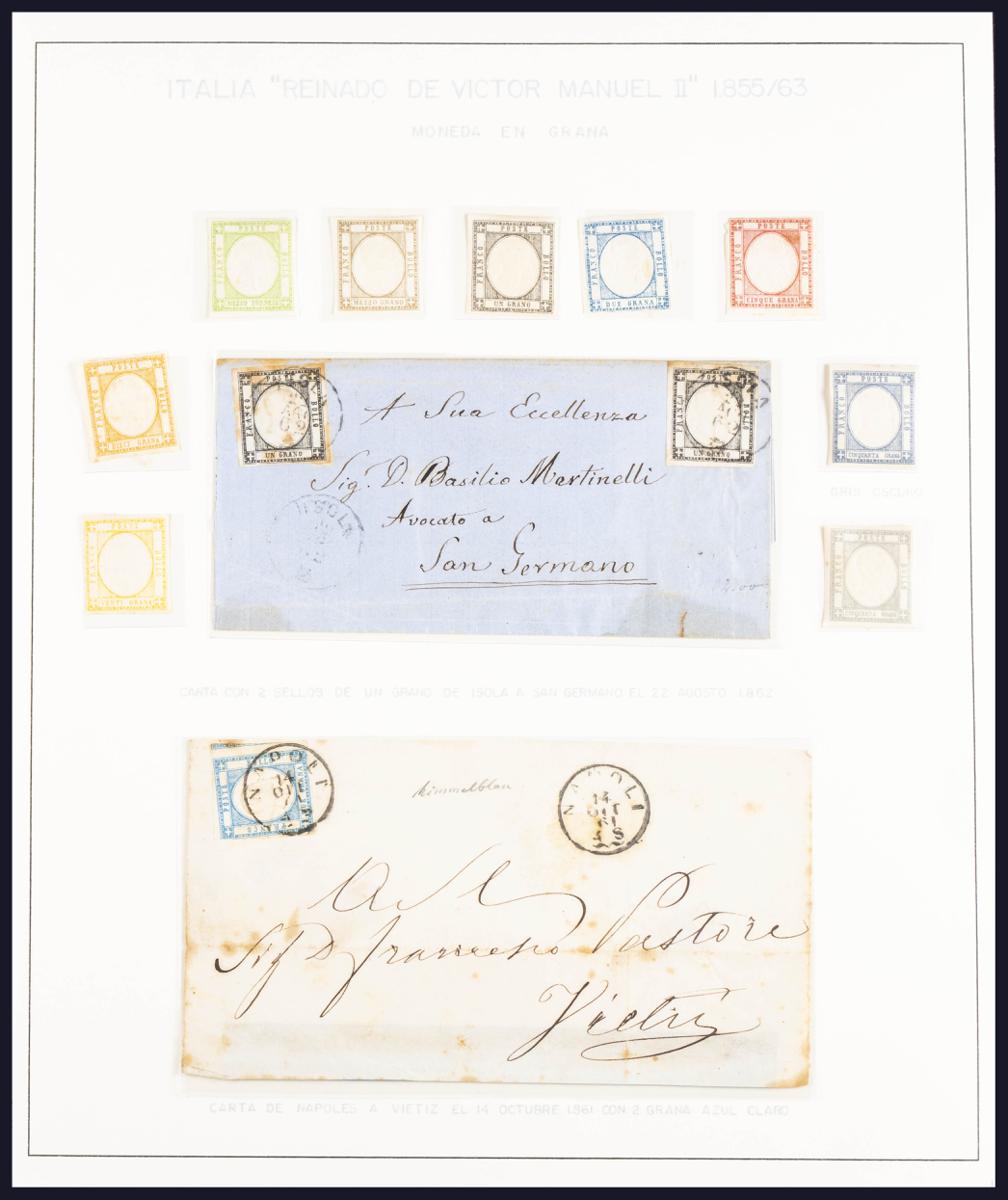 ITALIA "REINADO DE VICTOR MANUEL II" 1.855/63
MONEDA EN GRANA
POSTE
FRANCO
BOLLO
MEZZO TORNESE
POSTE
FRANCO
BOLLO
MEZZO GRANO
POSTE
FRANCO
BOLLO
UN GRANO
POSTE
FRANCO
BOLLO
DUE GRANA
POSTE
FRANCO
BOLLO
CINQUE GRANA
POSTE
FRANCO
BOLLO
DIECI GRANA
POSTE
FRANCO
BOLLO
UN GRANO
ISOLA
POSTE
FRANCO
BOLLO
UN GRANO
ISOLA
A Sua Eccellenza
Sig. D. Basilio Martinelli
Avocato a
San Germano
ISOLA
12.00
POSTE
FRANCO
BOLLO
CINQUANTA GRANA
GRIS OSCURO
POSTE
FRANCO
BOLLO
VENTI GRANA
POSTE
FRANCO
BOLLO
CINQUANTA GRANA
CARTA CON 2 SELLOS DE UN GRANO DE ISOLA A SAN GERMANO EL 22 AGOSTO 1.862
POSTE
FRANCO
GRANA
NAPOLI
14
Himmelblau
NAPOLI
14
OTT
61
A Sl
Sig D Francesco Pastore
Vietri
CARTA DE NAPOLES A VIETIZ EL 14 OCTUBRE 1.861 CON 2 GRANA AZUL CLARO